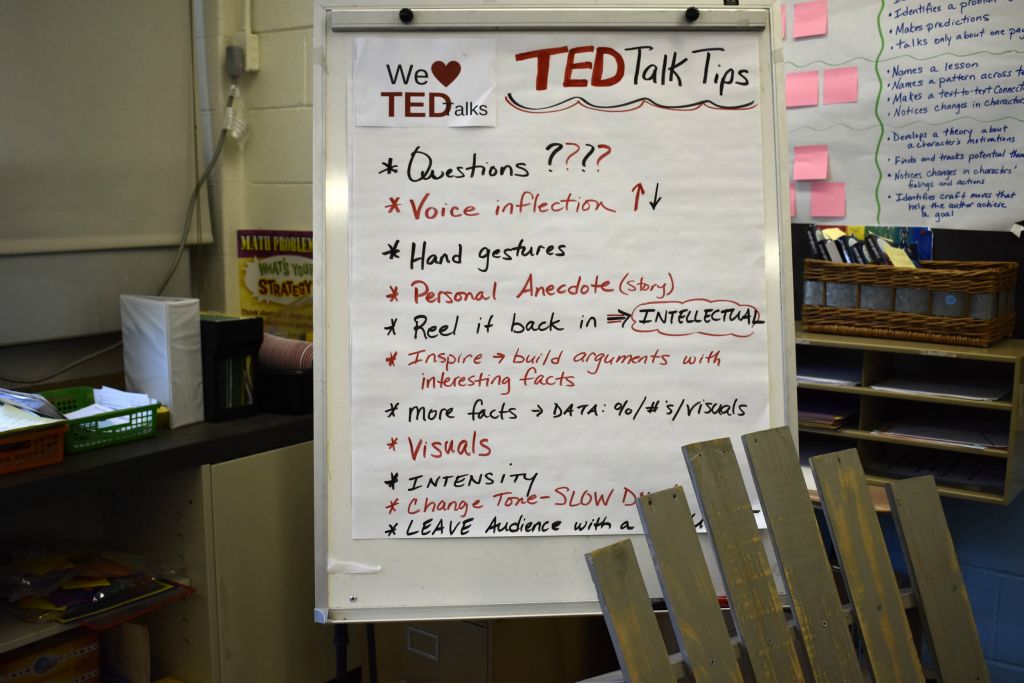 We
TED Talks
TED Talk Tips
* Questions ????
* Voice inflection ↑↓
* Hand gestures
* Personal Anecdote (story)
* Reel it back in ⇒ INTELLECTUAL
* Inspire → build arguments with
interesting facts
* more facts → DATA: %/#'s/visuals
* Visuals
* INTENSITY
* Change Tone-SLOW
* LEAVE Audience with a
MATH PROBLEM
WHAT'S YOUR
STRATEGY
• Identifies a
• Makes predictions
• talks only about one
• Names a lesson
• Names a pattern across
• Makes a text-to-text
• Notices changes in
• Develops a theory about
a character's motivations
• Finds and tracks potential
• Notices changes in characters'
feelings and actions
• Identifies craft moves that
help the author achieve
a goal